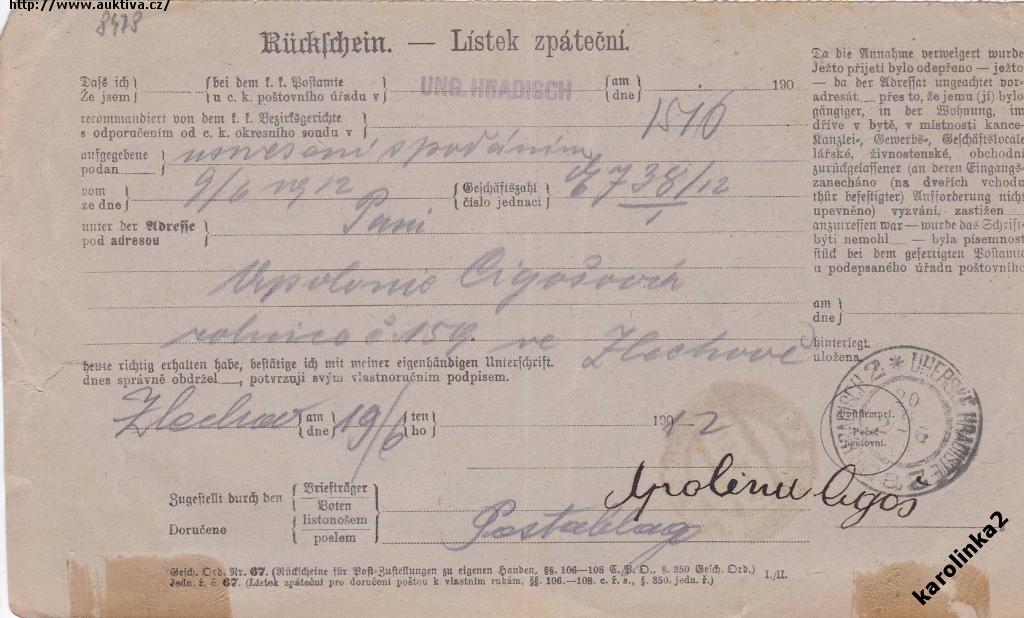 http://www.auktiva.cz/
8478
Rückschein. — Lístek zpáteční.
Daſs ich
Že jsem
bei dem k. k. Poſtamte
u c. k. poštovního úřadu v
UNG. HRADISCH
am
dne
190
recommandiert von dem k. k. Bezirksgerichte
s odporučením od c. k. okresního soudu v
1516
aufgegebene
podan
usnesení s podáním
vom
ze dne
9/6 1912
Geſchäftszahl
číslo jednací
738/12
unter der Adreſſe
pod adresou
Paní
Apolonie Cigošová
rolnice č 159. ve Zlechově
heute richtig erhalten habe, beſtätige ich mit meiner eigenhändigen Unterſchrift.
dnes správně obdržel, potvrzuji svým vlastnoručním podpisem.
Zlechov
am
dne
19/6
ten
ho
1912
Apolena Cigos
Zugeſtellt durch den
Doručeno
Briefträger
Boten
listonošem
poslem
Postablag
Geſch. Ord. Nr. 67. (Rückſcheine für Poſt-Zuſtellungen zu eigenen Handen, §§. 106—108 C. P. O., §. 350 Geſch. Ord.)
Jedn. ř. č. 67. (Lístek zpáteční pro doručení poštou k vlastním rukám, §§. 106—108. c. ř. s., §. 350. jedn. ř.)
I./II.
Da die Annahme verweigert wurde
Ježto přijetí bylo odepřeno — ježto
— da der Adreſſat ungeachtet vor-
adresát przes to, že jemu (jí) bylo
gängiger, in der Wohnung, im
dříve v bytě, v místnosti kance-
Kanzlei-, Gewerbs-, Geſchäftslocale
lářské, živnostenské, obchodní
zurückgelaſſener (an deren Eingangs-
zanecháno (na dveřích vchodu
thür befeſtigter) Aufforderung nicht
upevněno) vyzvání, zastižen
anzureſſen war — wurde das Schrift-
býti nemohl — byla písemnost
ſtück bei dem gefertigten Poſtamte
u podepsaného úřadu poštovního
am
dne
hinterlegt.
uložena.
Poſtſtempel.
Pečeť
poštovní.
UHERSKÉ HRADIŠTĚ 2
HRADISCH 2
karolinka2